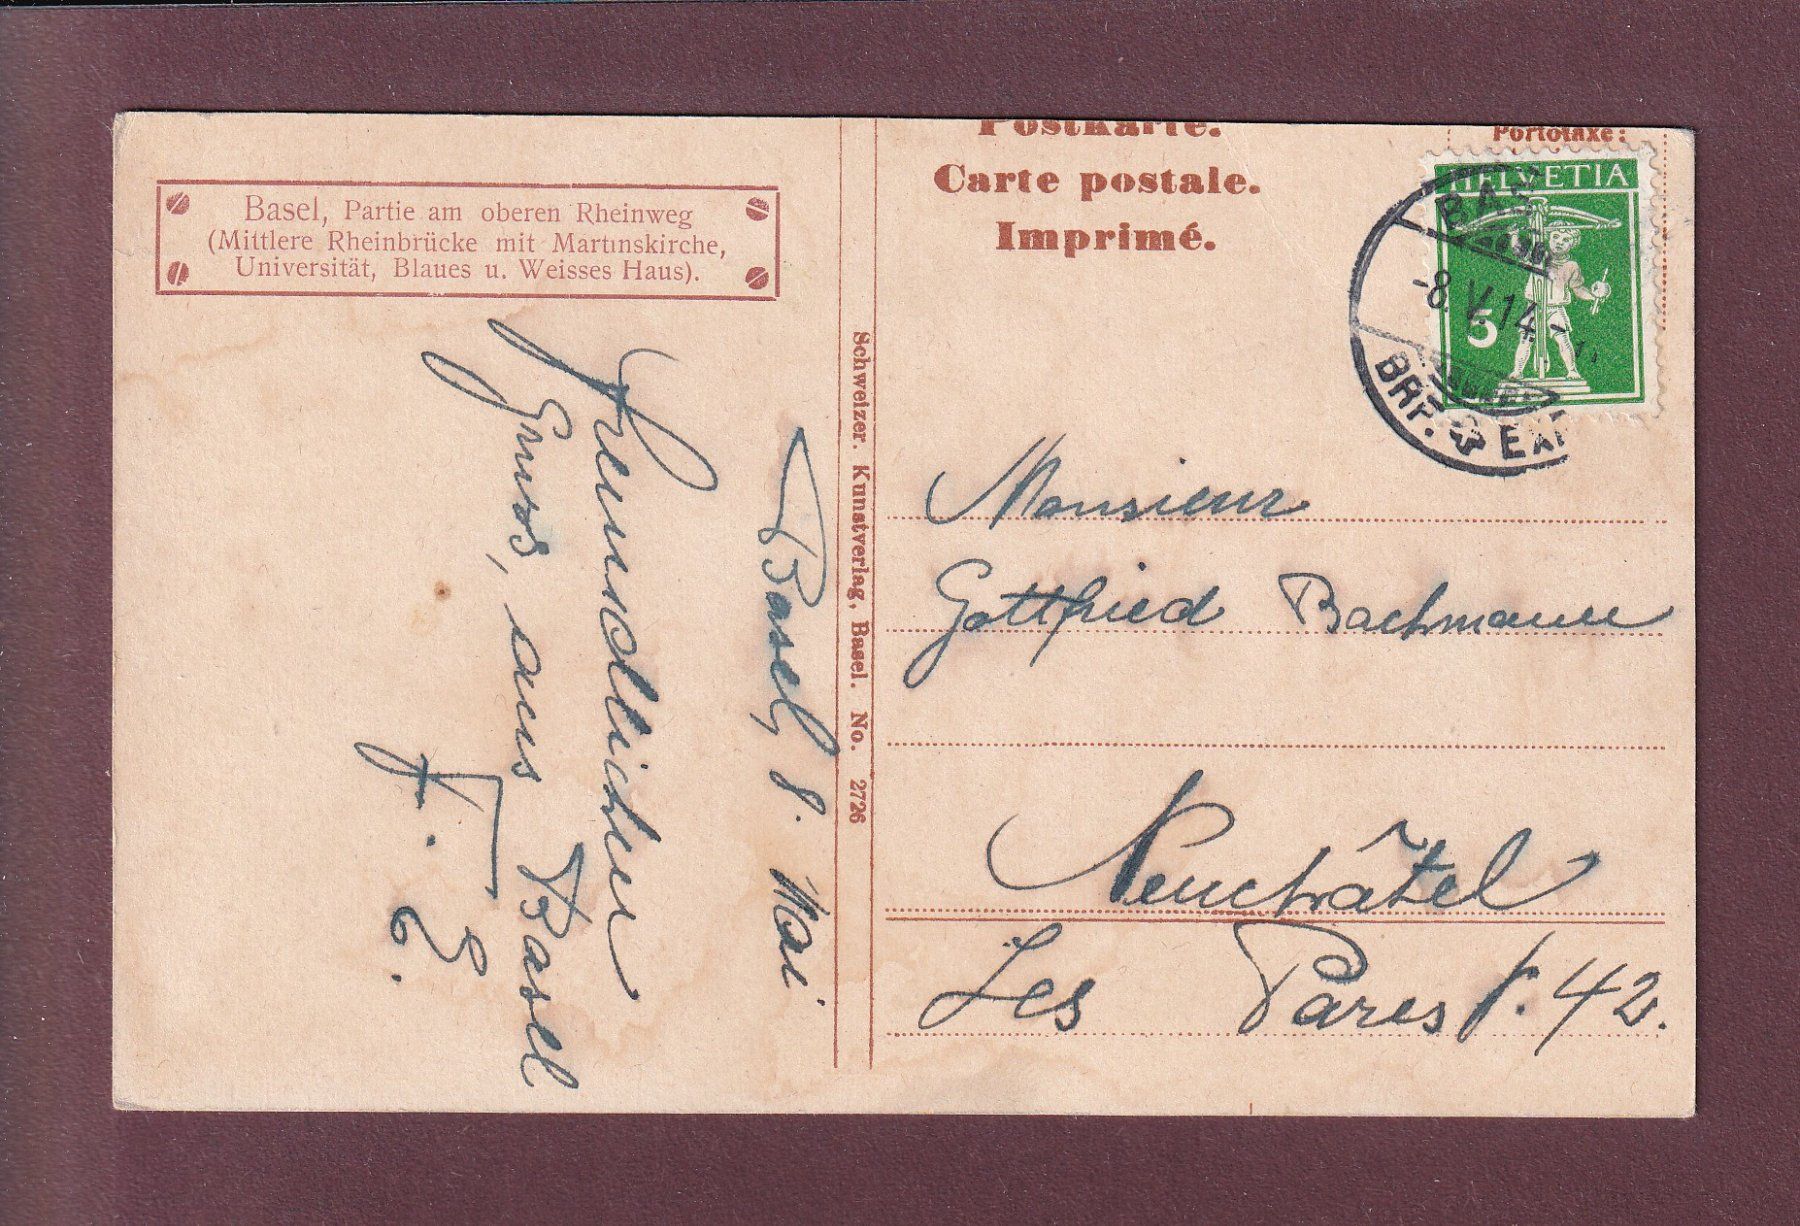 Basel, Partie am oberen Rheinweg
(Mittlere Rheinbrücke mit Martinskirche,
Universität, Blaues u. Weisses Haus).
Basel, 8. Mai
Freundlicher
Gruss, aus Basel
F. E.
Schweizer. Kunstverlag, Basel. No. 2726
Postkarte.
Carte postale.
Imprimé.
Portotaxe:
HELVETIA
5
BAS
-8.V.14
BRF. EXP
Monsieur
Gottfried Bachmann
Neuchâtel
Les Parcs 42.